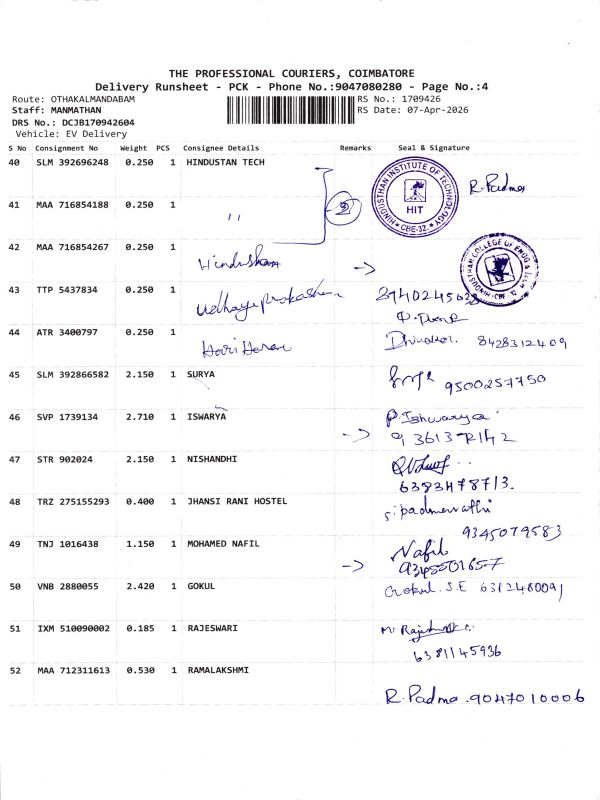 THE PROFESSIONAL COURIERS, COIMBATORE
Delivery Runsheet - PCK - Phone No.:9047080280 - Page No.:4
Route: OTHAKALMANDABAM RS No.: 1709426
Staff: MANMATHAN RS Date: 07-Apr-2026
DRS No.: DCJB170942604
Vehicle: EV Delivery
S No Consignment No Weight PCS Consignee Details Remarks Seal & Signature
40 SLM 392696248 0.250 1 HINDUSTAN TECH
HINDUSTHAN INSTITUTE OF TECHNOLOGY HIT CBE-32 R. Padma
41 MAA 716854188 0.250 1 ,, 2
42 MAA 716854267 0.250 1 Hindusthan
HINDUSTHAN COLLEGE OF ENGG & TECH CBE 32
43 TTP 5437834 0.250 1 Udhayaprakashan
44 ATR 3400797 0.250 1 Hari Haran 8428312409
45 SLM 392866582 2.150 1 SURYA 9500257750
46 SVP 1739134 2.710 1 ISWARYA P Ishwarya
47 STR 902024 2.150 1 NISHANDHI
48 TRZ 275155293 0.400 1 JHANSI RANI HOSTEL S. padmavathi
9345079583
49 TNJ 1016438 1.150 1 MOHAMED NAFIL Nafil
9345501657
50 VNB 2880055 2.420 1 GOKUL Gokul. S.E 6312480091
51 IXM 510090002 0.185 1 RAJESWARI
6381145936
52 MAA 712311613 0.530 1 RAMALAKSHMI
R. Padma. 9047010006